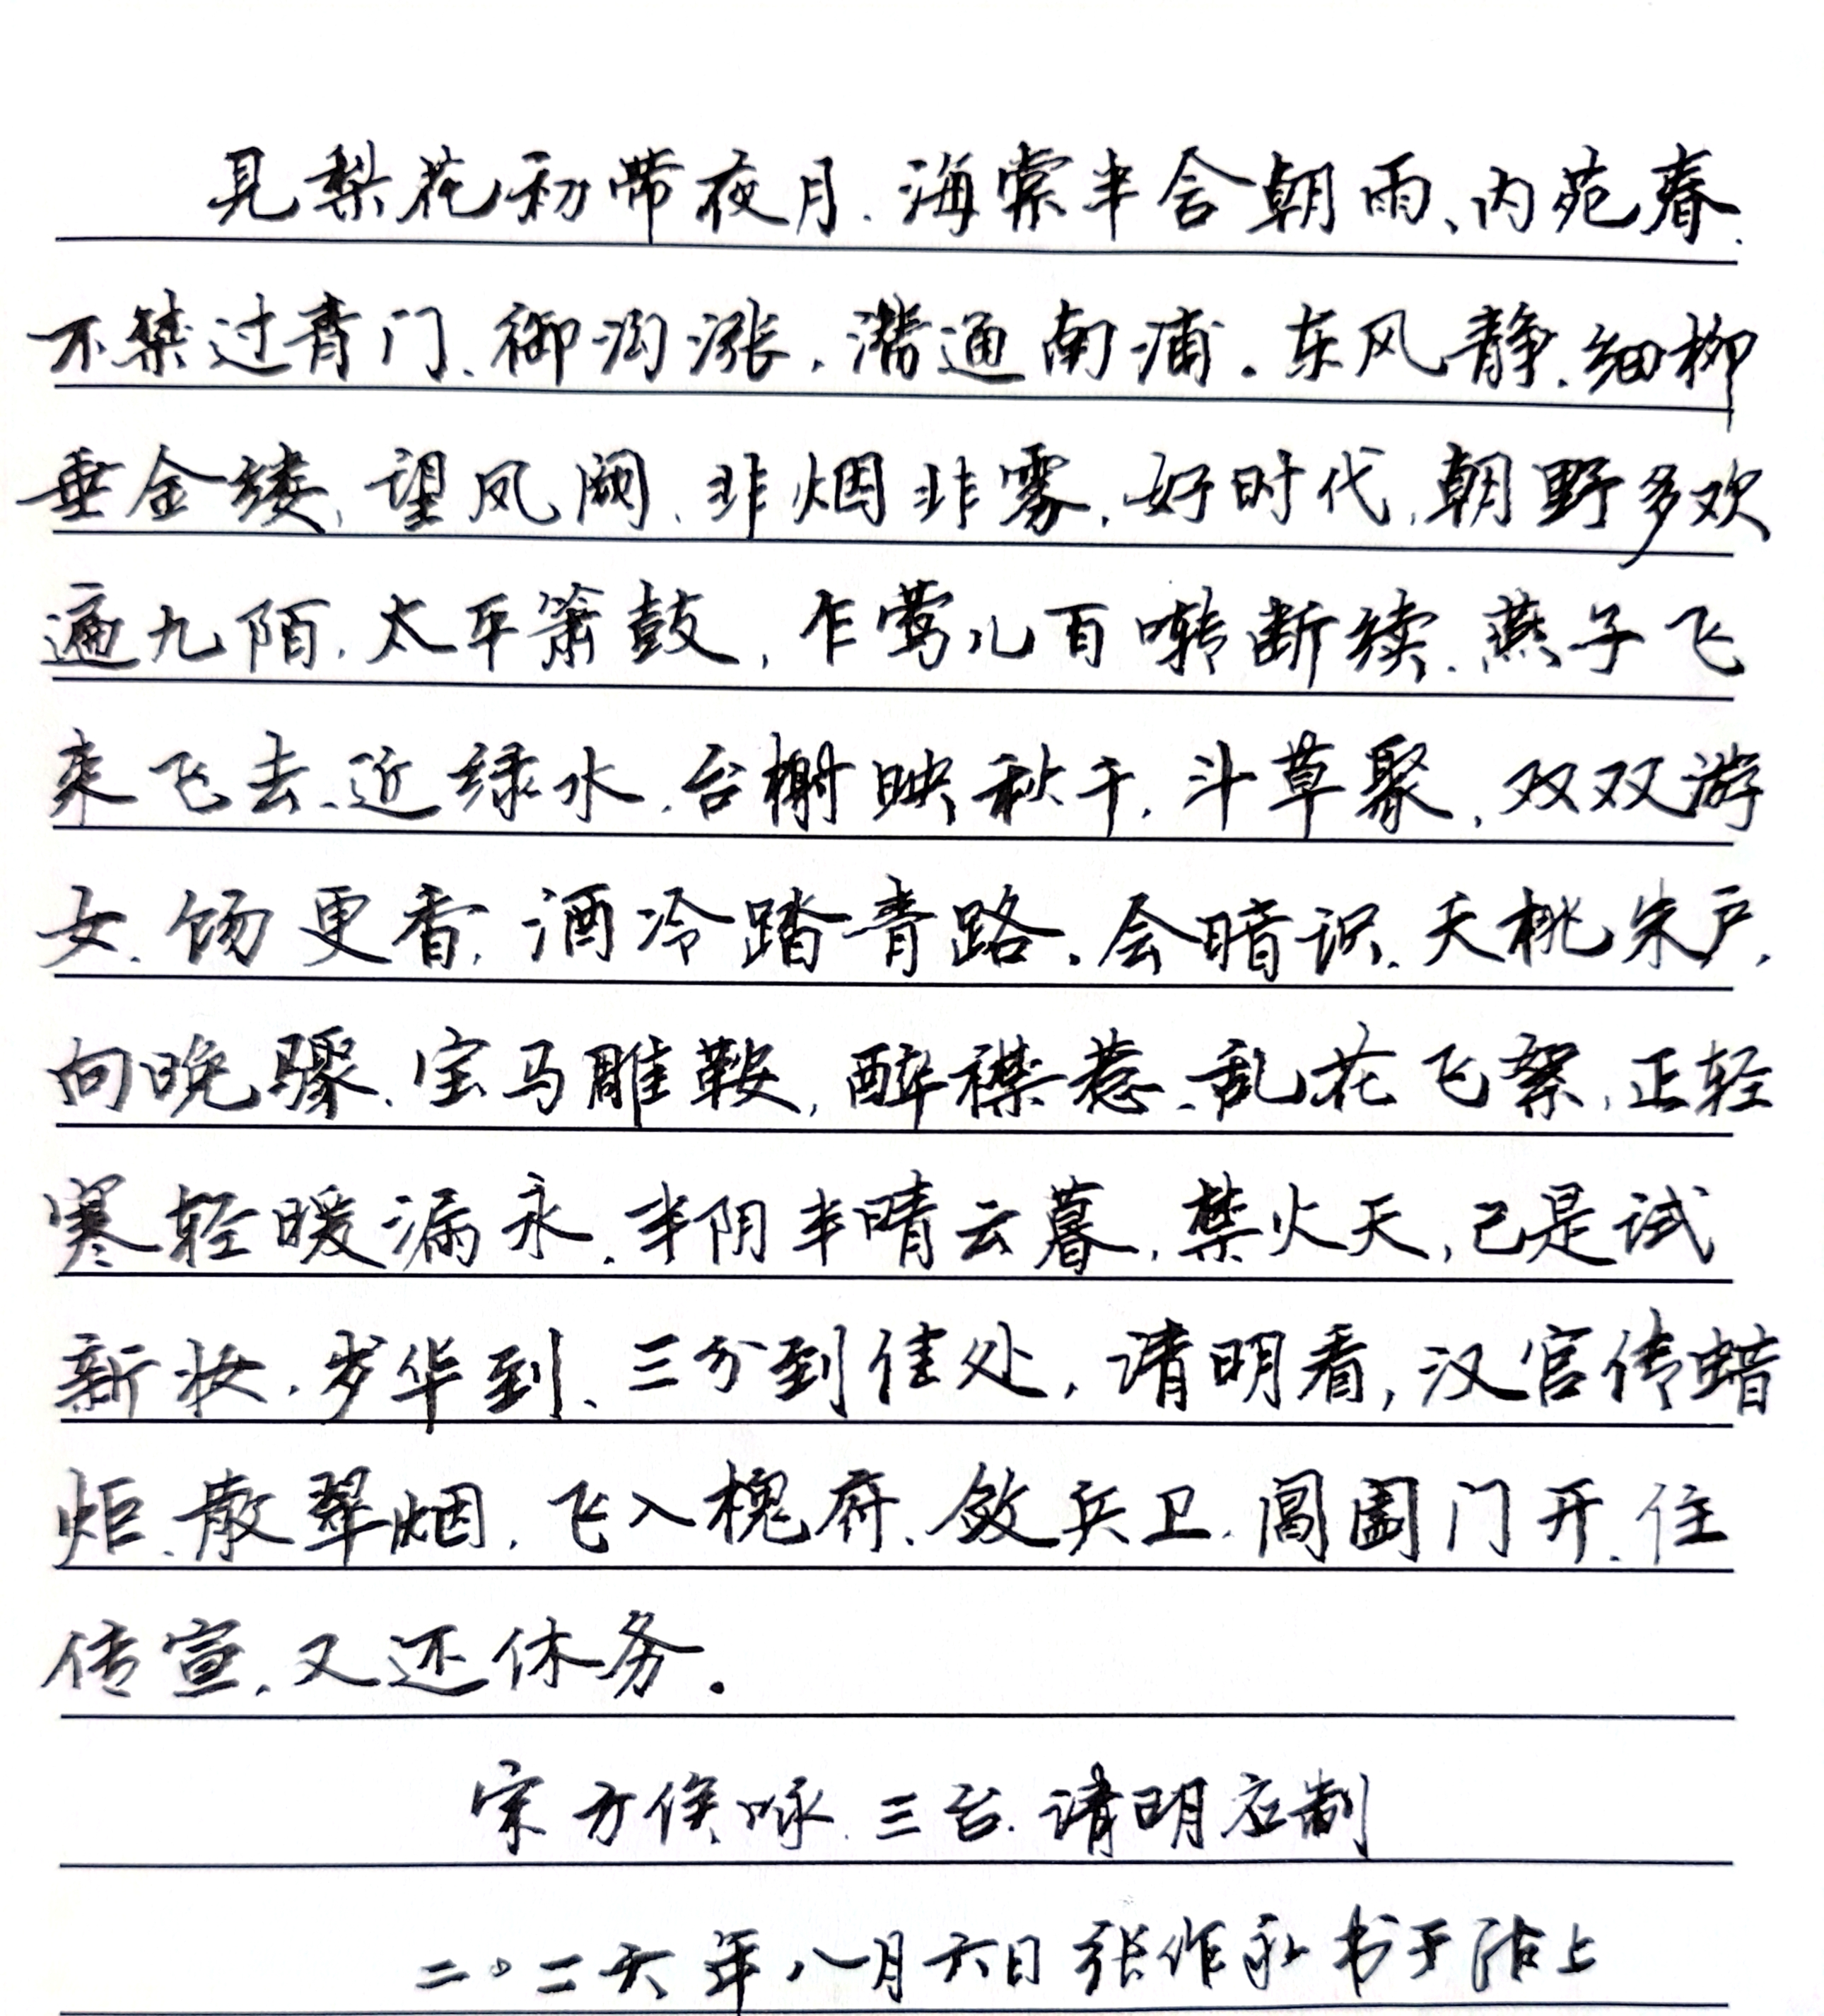 见梨花初带夜月.海棠半含朝雨、内苑春.
不禁过青门、御沟涨,潜通南浦。东风静.细柳
垂金缕,望凤阙、非烟非雾,好时代,朝野多欢
遍九陌.太平箫鼓,乍莺儿百啭断续.燕子飞
来飞去、近绿水.台榭映秋千,斗草聚,双双游
女.饧更香,酒冷踏青路。会暗识.夭桃朱户,
向晚骤、宝马雕鞍,醉襟惹、乱花飞絮,正轻
寒轻暖漏永.半阴半晴云暮,禁火天,已是试
新妆,岁华到、三分到佳处,请明看,汉宫传蜡
炬.散翠烟,飞入槐府、敛兵卫.阊阖门开.住
传宣.又还休务。
宋万俟咏.三台.请明应制
二〇二六年八月六日张作永书于沽上